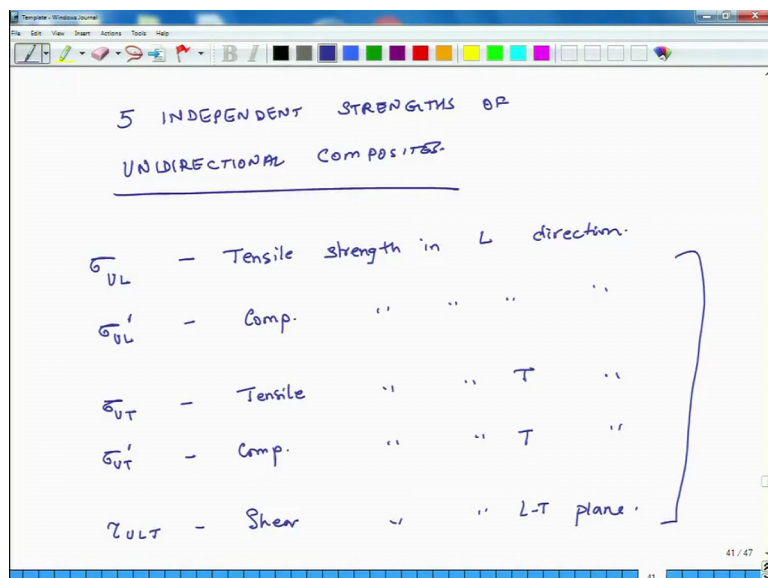 Template - Windows Journal
File Edit View Insert Actions Tools Help
B I
5 INDEPENDENT STRENGTHS OF
UNIDIRECTIONAL COMPOSITES.
σ_UL - Tensile strength in L direction.
σ_UL' - Comp. " " " "
σ_UT - Tensile " " T "
σ_UT' - Comp. " " T "
τ_ULT - Shear " " L-T plane.
41 / 47
41